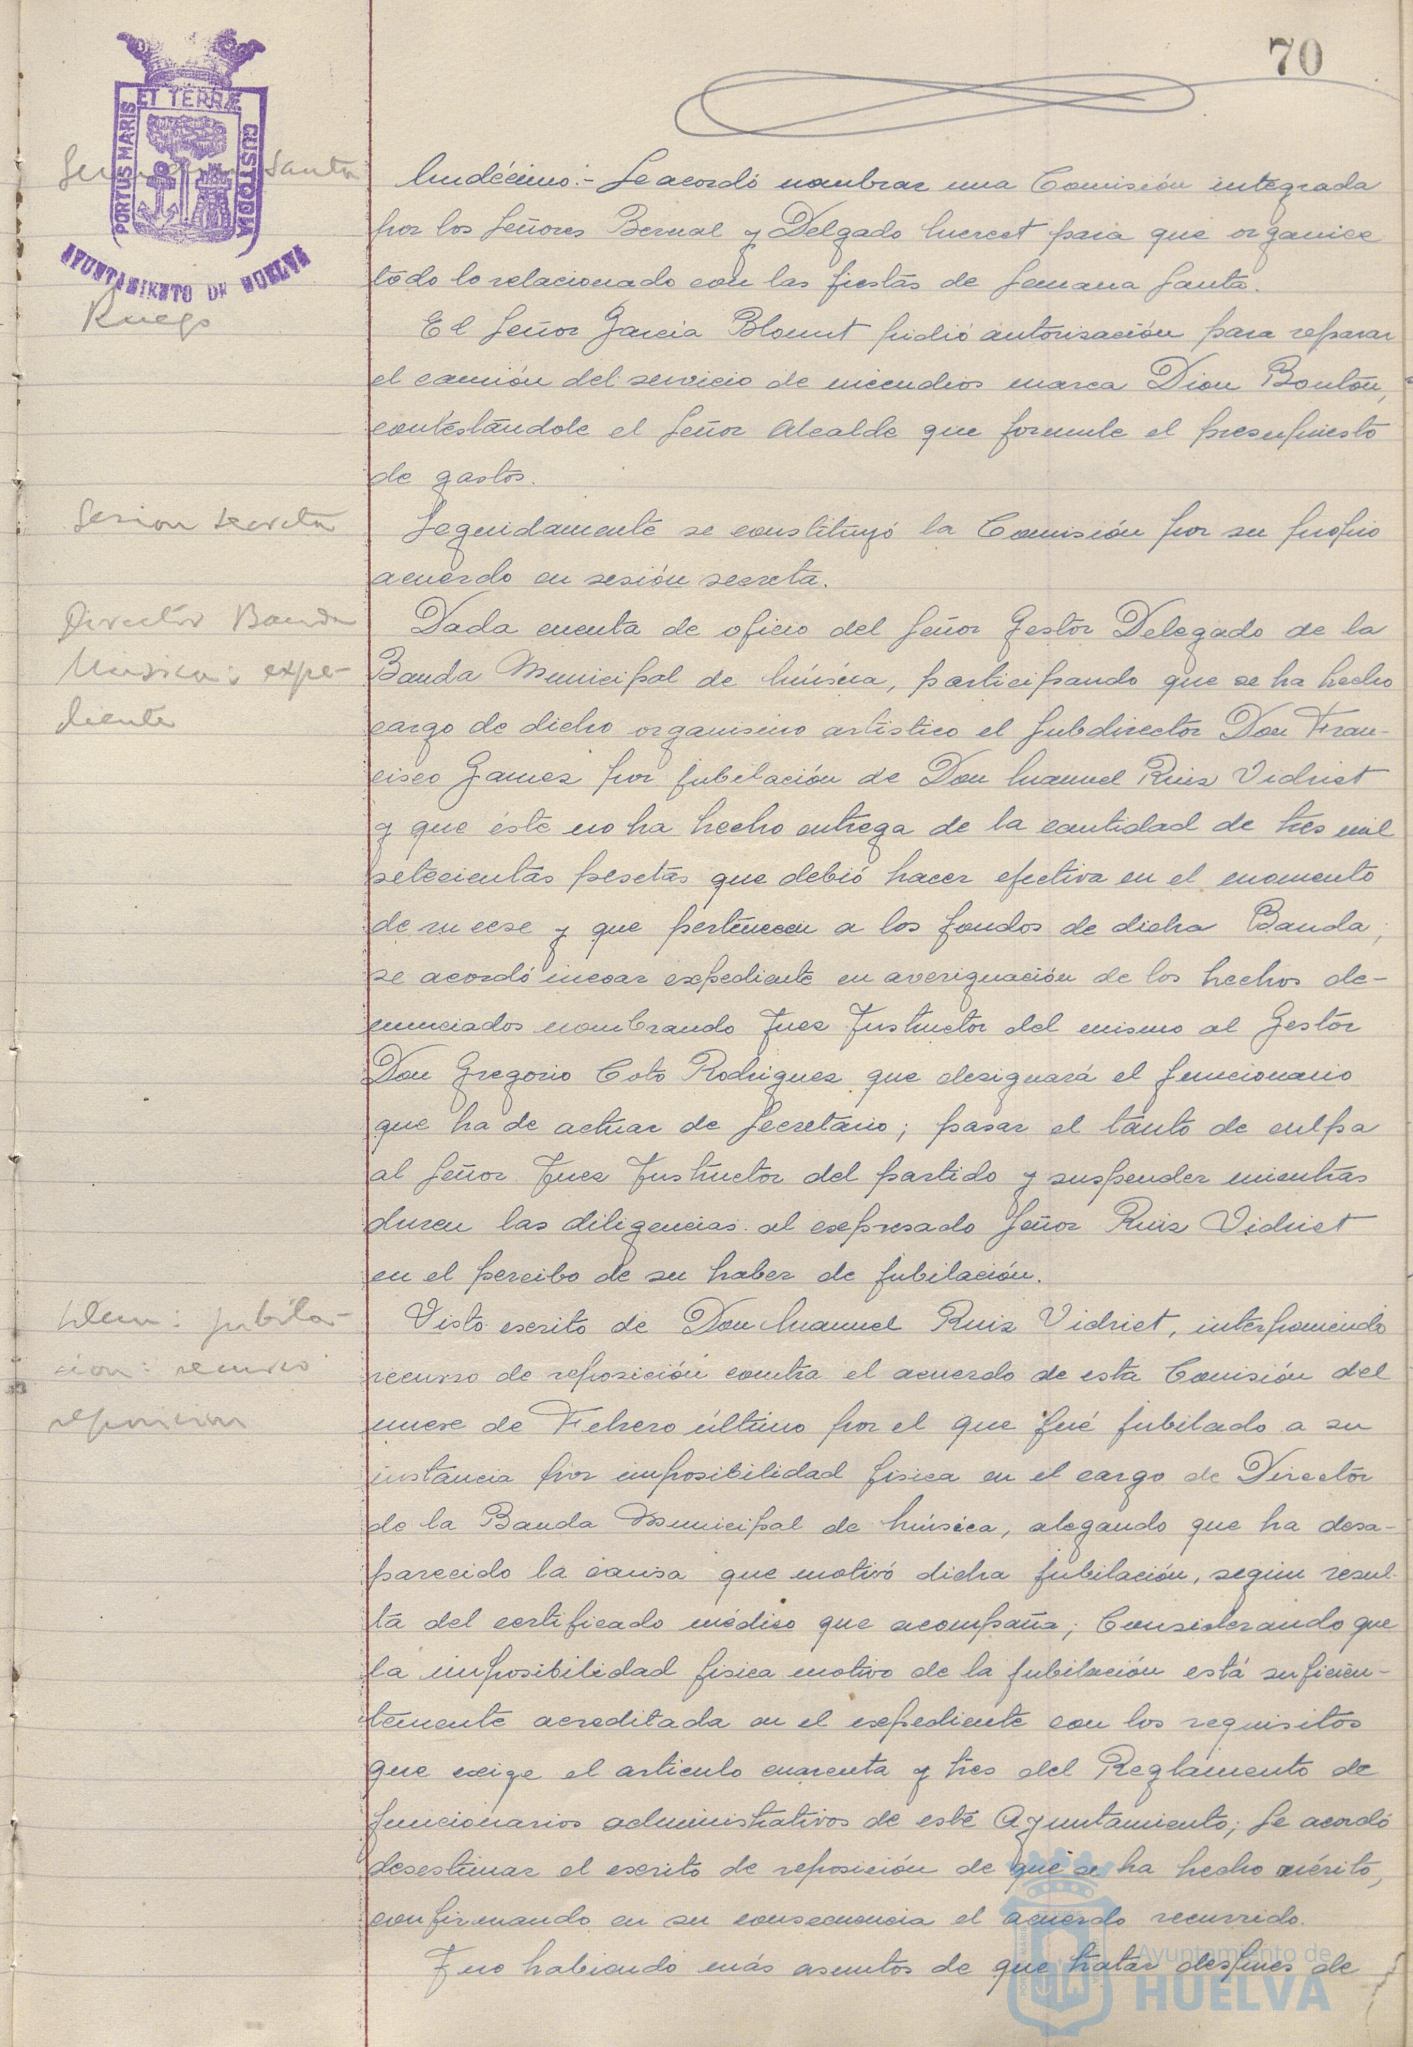 70
PORTUS MARIS ET TERRÆ CUSTODIA
AYUNTAMIENTO DE HUELVA
Santa
Undécimo:- Se acordó nombrar una Comisión integrada
por los Señores Bernal y Delgado para que organice
todo lo relacionado con las fiestas de Semana Santa.
Ruego
El Señor García Blount pidió autorisación para reparar
el camión del servicio de incendios marca Dion Boutón,
contestándole el Señor Alcalde que formule el presupuesto
de gastos.
Sesion secreta
Seguidamente se constituyó la Comisión por su propio
acuerdo en sesión secreta.
Director Banda
Musica: expe-
diente
Dada cuenta de oficio del Señor Gestor Delegado de la
Banda Municipal de Música, participando que se ha hecho
cargo de dicho organismo artistico el Subdirector Don Fran-
cisco Gamez por jubilación de Don Manuel Ruiz Vidriet
y que éste no ha hecho entrega de la cantidad de tres mil
setecientas pesetas que debió hacer efectiva en el momento
de su cese y que pertenecen a los fondos de dicha Banda;
se acordó incoar expediente en averiguación de los hechos de-
nunciados nombrando Juez Instructor del mismo al Gestor
Don Gregorio Coto Rodriguez que designará el funcionario
que ha de actuar de Secretario; pasar el tanto de culpa
al Señor Juez Instructor del partido y suspender mientras
duren las diligencias al expresado Señor Ruiz Vidriet
en el percibo de su haber de jubilación.
Idem: jubila-
cion: recurso
reposicion
Visto escrito de Don Manuel Ruiz Vidriet, interponiendo
recurso de reposición contra el acuerdo de esta Comisión del
nueve de Febrero último por el que fué jubilado a su
instancia por imposibilidad fisica en el cargo de Director
de la Banda Municipal de Música, alegando que ha desa-
parecido la causa que motivó dicha jubilación, según resul-
ta del certificado médico que acompaña; Considerando que
la imposibilidad fisica motivo de la jubilación está suficien-
temente acreditada en el expediente con los requisitos
que exige el articulo cuarenta y tres del Reglamento de
funcionarios administrativos de este Ayuntamiento; Se acordó
desestimar el escrito de reposición de que se ha hecho mérito,
confirmando en su consecuencia el acuerdo recurrido.
Y no habiendo más asuntos de que tratar despues de
Ayuntamiento de
HUELVA